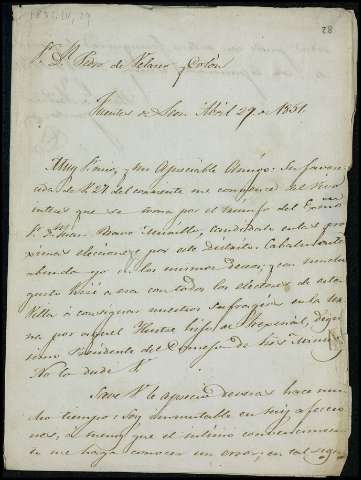 1851, IV, 29
28
Sr. Dn. Pedro de Velasco y Colón
Fuentes de León Abril 29 de 1851.
Muy Sr. mio, y mi Apreciable Amigo: Su favore
cida de 27 del corriente me convence del vivo
interes que se toma por el triunfo del Excmo
Sr. Dn. Juan Bravo Murillo, Candidato en las pro
ximas elecciones por este Distrito. Cabalmente
abundo yo en los mismos deseos; y con mucho
gusto iré a esa con todos los electores de esta
Villa a consignar nuestros sufragios en la Urna
por aquel Ilustre hijo de Fregenal, digni
simo Presidente del Consejo de los Ministros
No lo dude V.
Sabe V. le aprecio deveras hace mu
cho tiempo: soy inmutable en mis afeccio
nes, a menos que el intimo convencimien
to me haga conocer un error; en tal